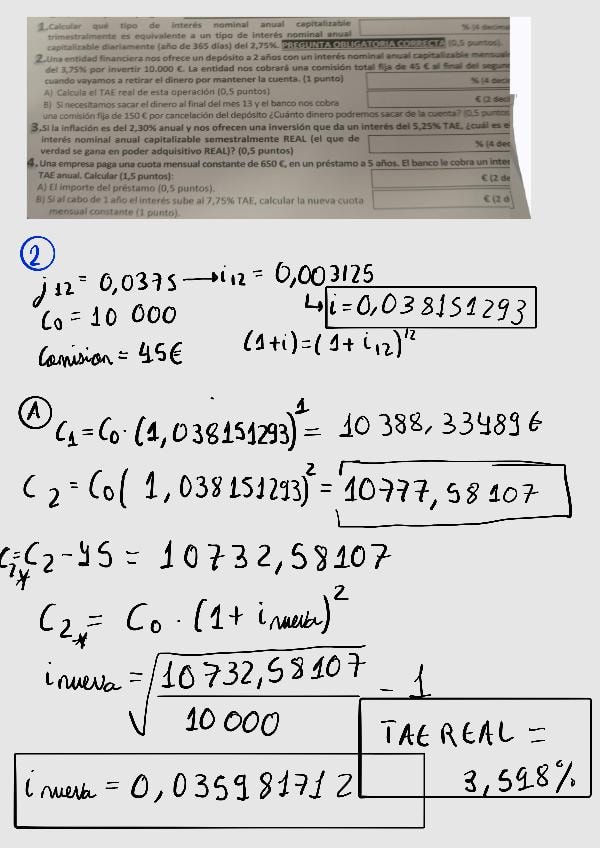 1.Calcular qué tipo de interés nominal anual capitalizable
trimestralmente es equivalente a un tipo de interés nominal anual
capitalizable diariamente (año de 365 días) del 2,75%. PREGUNTA OBLIGATORIA CORRECTA (0,5 puntos).
% (4 decima
2.Una entidad financiera nos ofrece un depósito a 2 años con un interés nominal anual capitalizable mensual
del 3,75% por invertir 10.000 €. La entidad nos cobrará una comisión total fija de 45 € al final del segun
cuando vayamos a retirar el dinero por mantener la cuenta. (1 punto)
A) Calcula el TAE real de esta operación (0,5 puntos)
% (4 deci
B) Si necesitamos sacar el dinero al final del mes 13 y el banco nos cobra
€ (2 deci
una comisión fija de 150 € por cancelación del depósito ¿Cuánto dinero podremos sacar de la cuenta? (0,5 puntos
3.Si la inflación es del 2,30% anual y nos ofrecen una inversión que da un interés del 5,25% TAE, ¿cuál es e
interés nominal anual capitalizable semestralmente REAL (el que de
verdad se gana en poder adquisitivo REAL)? (0,5 puntos)
% (4 dec
4.Una empresa paga una cuota mensual constante de 650 €, en un préstamo a 5 años. El banco le cobra un inter
TAE anual. Calcular (1,5 puntos):
A) El importe del préstamo (0,5 puntos).
€ (2 de
B) Si al cabo de 1 año el interés sube al 7,75% TAE, calcular la nueva cuota
mensual constante (1 punto).
€ (2 d
2
j12 = 0,0375 → i12 = 0,003125
C0 = 10 000
↳ i = 0,038151293
Comision = 45€
(1+i) = (1+i12)^12
A
C1 = C0 · (1,038151293)^1 = 10 388,33489 €
C2 = C0 ( 1,038151293)^2 = 10777,58107
C2* = C2 - 45 = 10732,58107
C2* = C0 · (1 + i nueva)^2
i nueva = √(10732,58107 / 10 000) - 1
TAE REAL =
3,598%
i nueva = 0,035981712